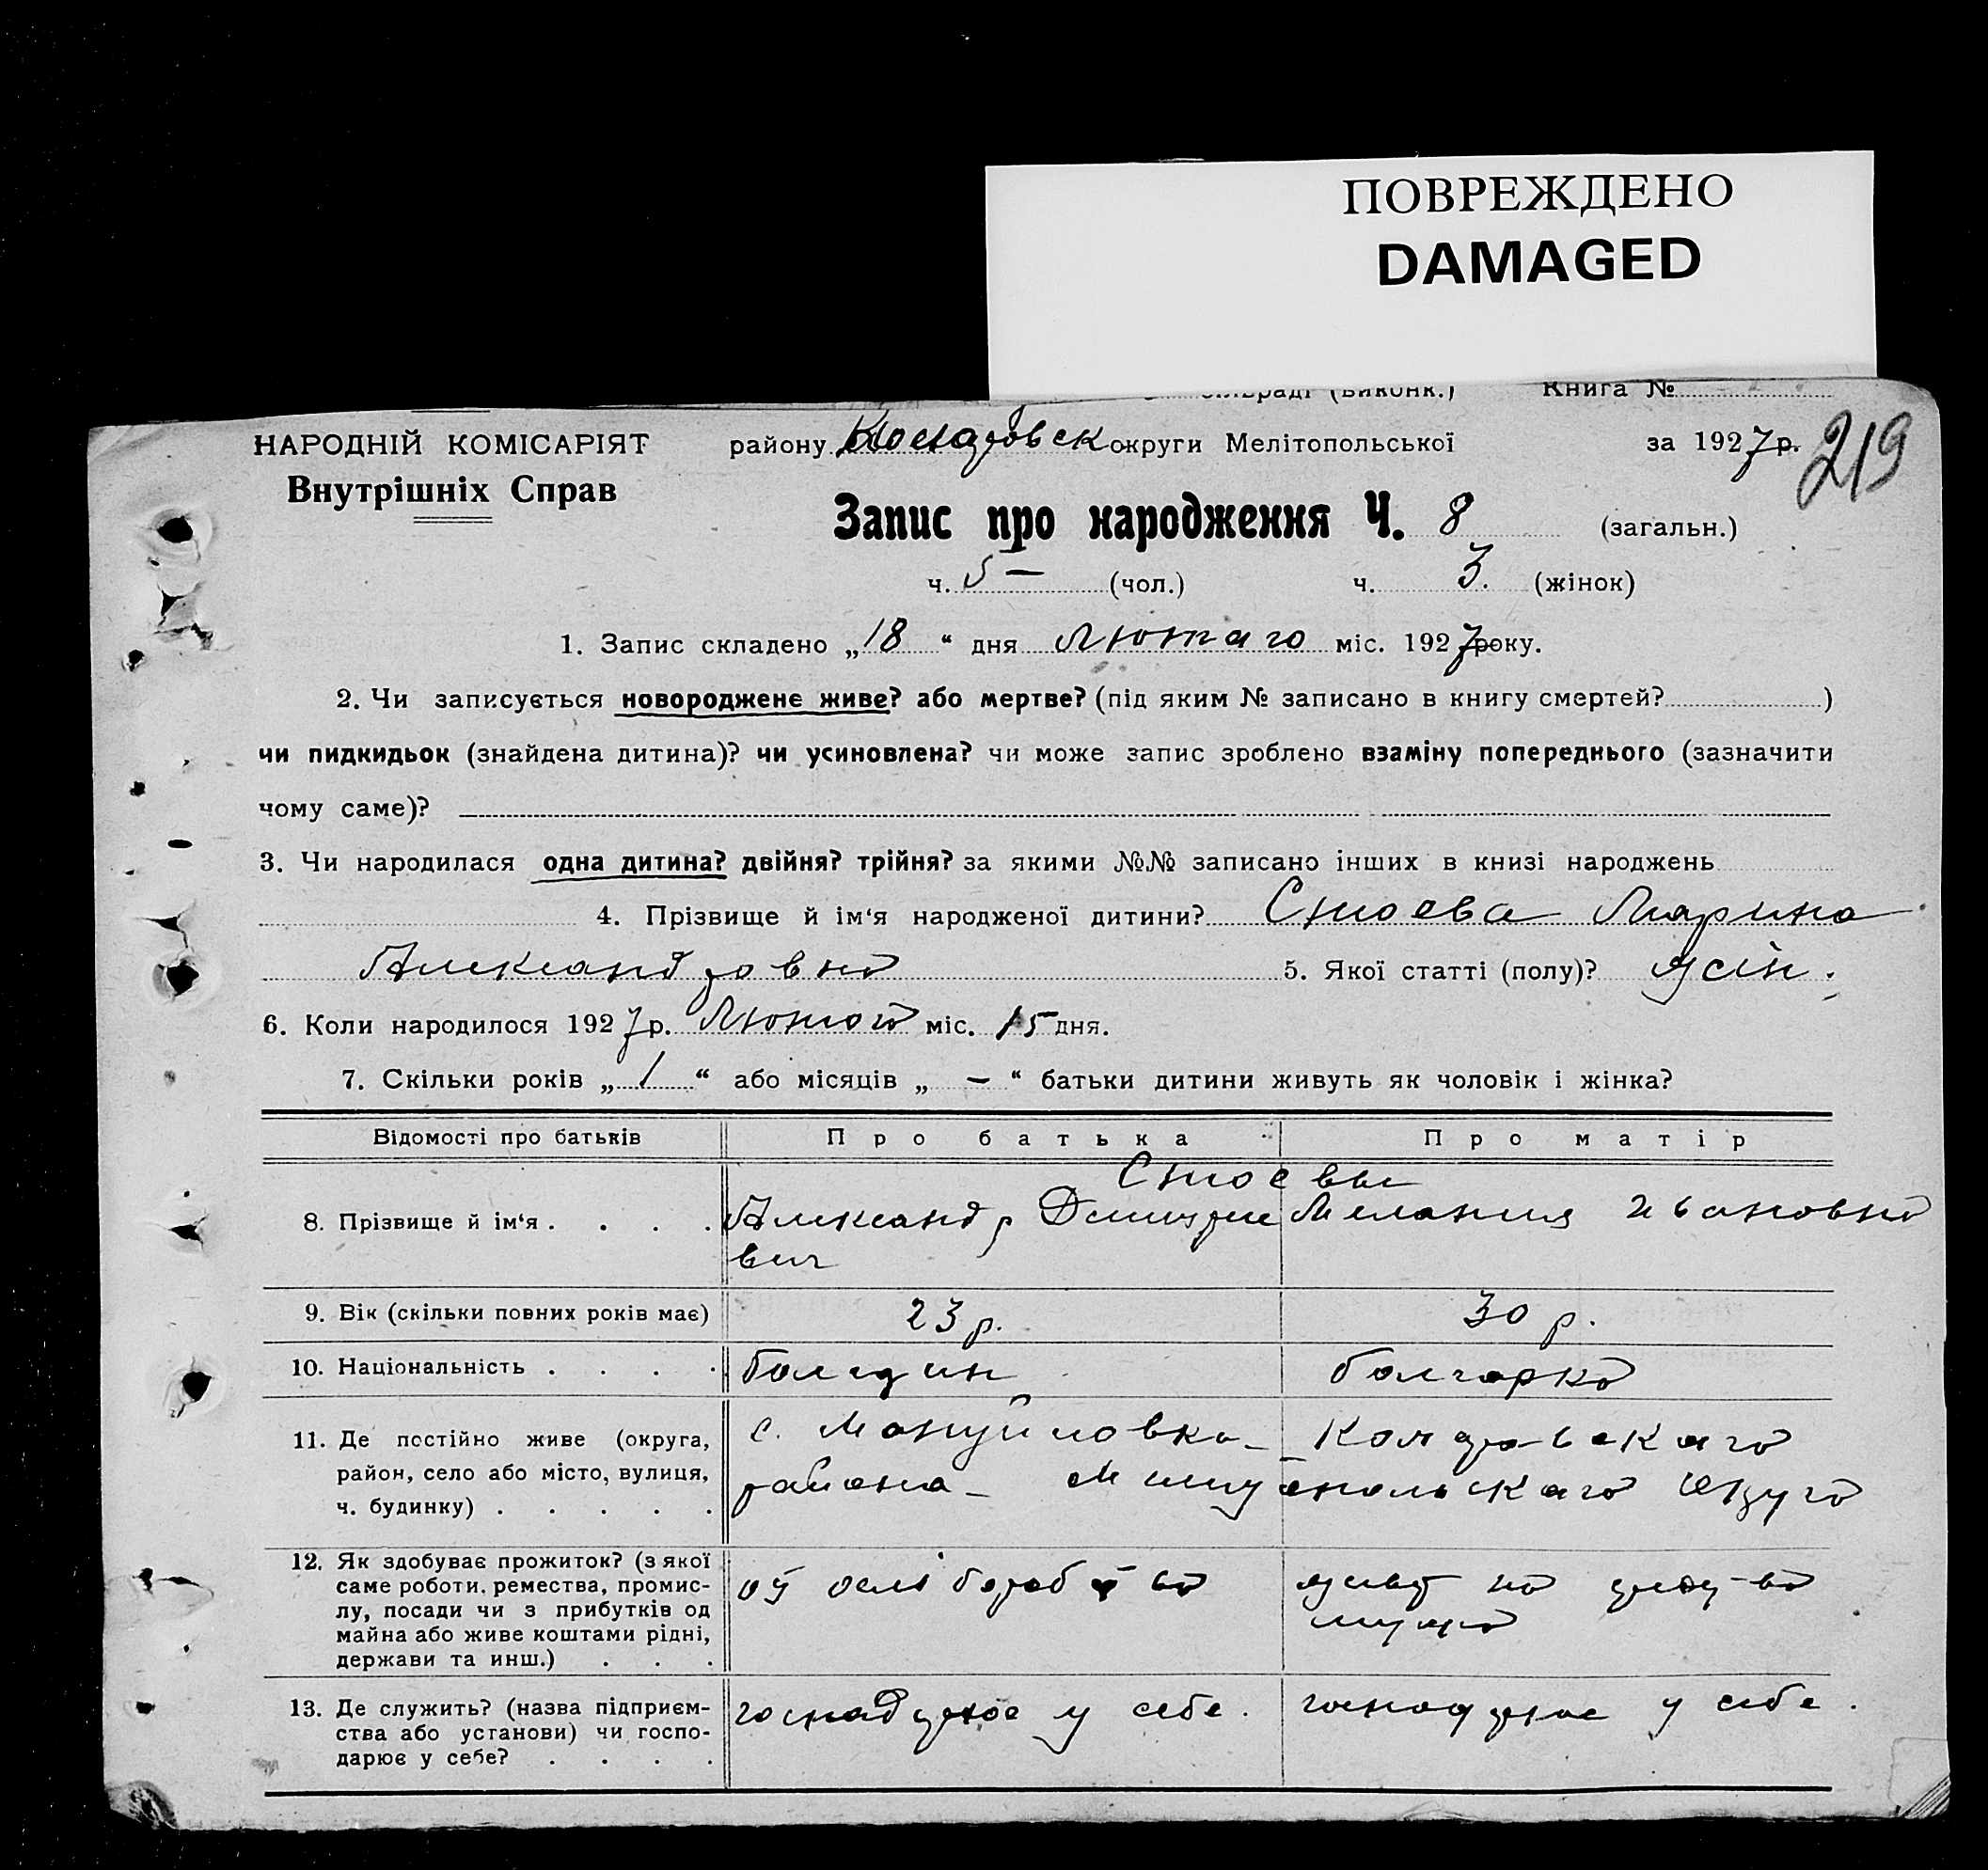 ПОВРЕЖДЕНО
DAMAGED
(виконк.) Книга №
НАРОДНІЙ КОМІСАРІЯТ району округи Мелітопольської за 1927 р. 219
Внутрішніх Справ
Запис про народження Ч. 8 (загальн.)
ч. 5 — (чол.) ч. 3. (жінок)
1. Запис складено „18“ дня Лютаго міс. 1927 року.
2. Чи записується новороджене живе? або мертве? (під яким № записано в книгу смертей? )
чи пидкидьок (знайдена дитина)? чи усиновлена? чи може запис зроблено взаміну попереднього (зазначити
чому саме)?
3. Чи народилася одна дитина? двійня? трійня? за якими №№ записано інших в книзі народжень
4. Прізвище й ім‘я народженої дитини? Стоева Марина
Александровна 5. Якої статті (полу)? жін.
6. Коли народилося 1927 р. Лютого міс. 15 дня.
7. Скільки років „1“ або місяців „—“ батьки дитини живуть як чоловік і жінка?
Відомості про батьків Про батька Про матір
Стоевы
8. Прізвище й ім‘я . . . . Александр Дмитрие Мелания Ивановна
вич
9. Вік (скільки повних років має) 23 р. 30 р.
10. Національність . . . . болгарка
11. Де постійно живе (округа, с. Мануйловка
район, село або місто, вулиця, района округа
ч. будинку) . . . . .
12. Як здобуває прожиток? (з якої
саме роботи, ремества, промис-
лу, посади чи з прибутків од
майна або живе коштами рідні,
держави та инш.) . . .
13. Де служить? (назва підприєм- у себе. у себе.
ства або установи) чи госпо-
дарює у себе? . . . .